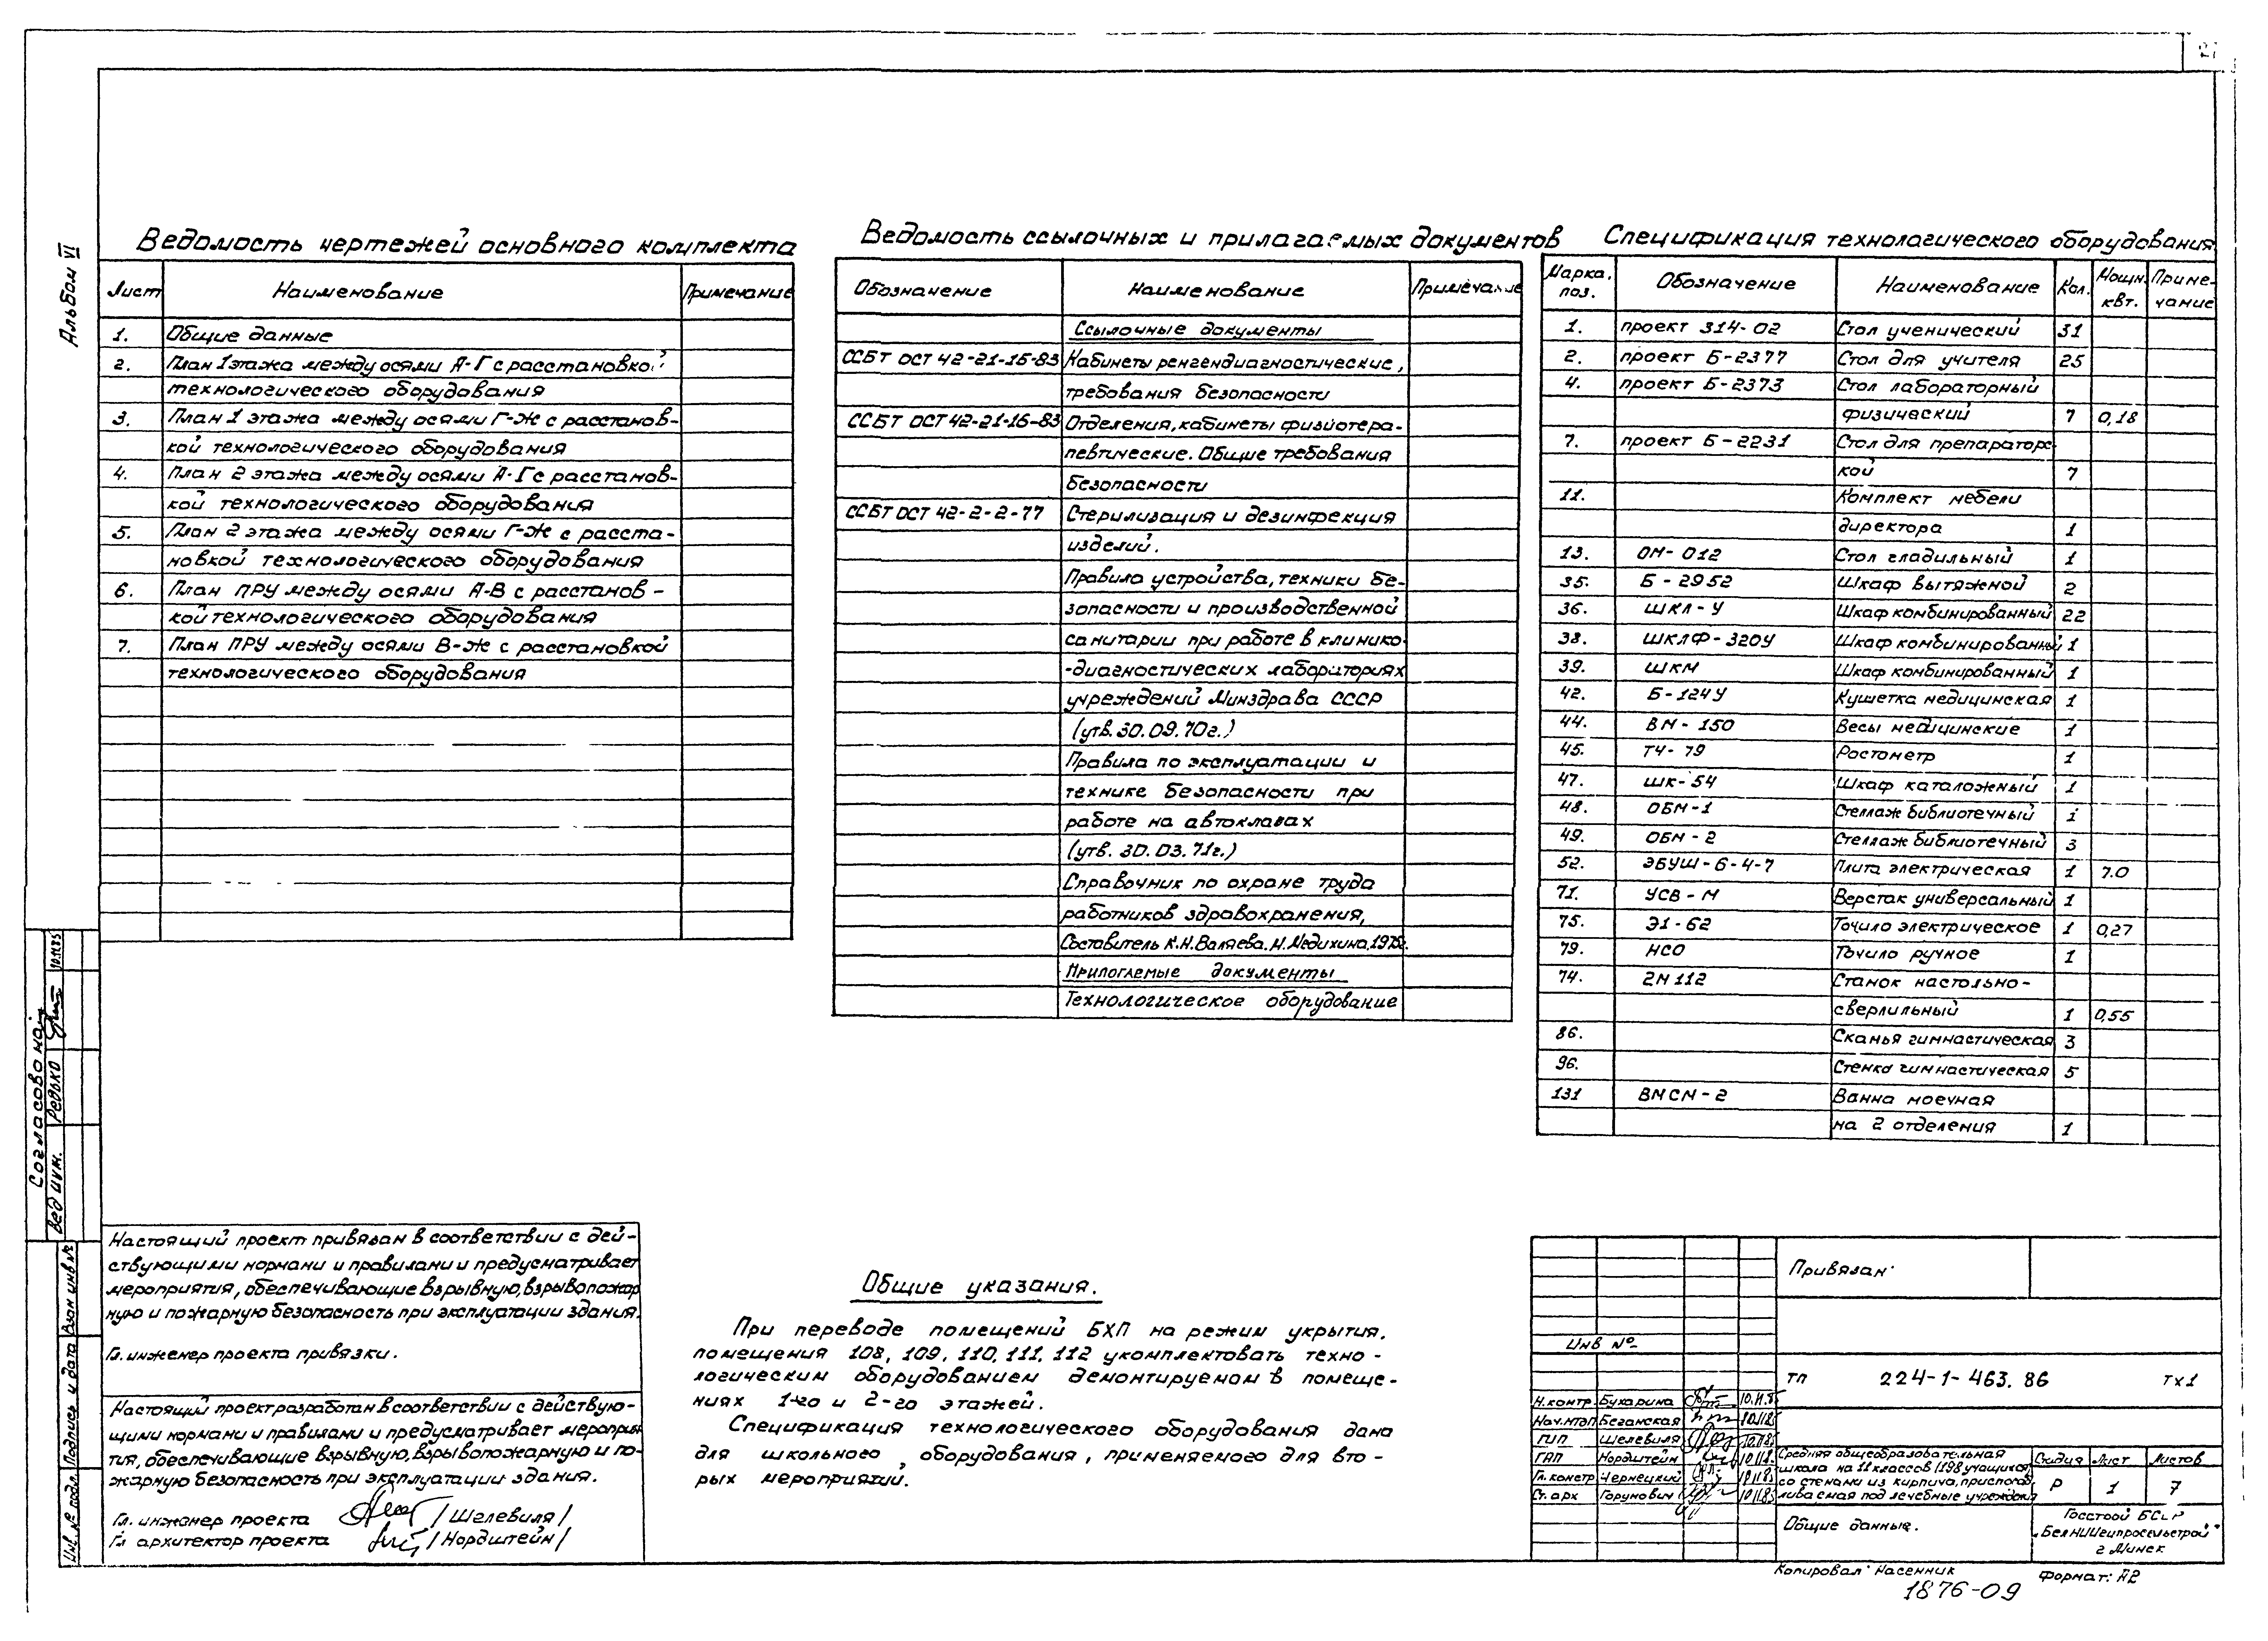 Альбом VI
Ведомость чертежей основного комплекта
Лист Наименование Примечание
1. Общие данные
2. План 1 этажа между осями А-Г с расстановкой
технологического оборудования
3. План 1 этажа между осями Г-Ж с расстанов-
кой технологического оборудования
4. План 2 этажа между осями А-Г с расстанов-
кой технологического оборудования
5. План 2 этажа между осями Г-Ж с расста-
новкой технологического оборудования
6. План ПРУ между осями А-В с расстанов-
кой технологического оборудования
7. План ПРУ между осями В-Ж с расстановкой
технологического оборудования
Ведомость ссылочных и прилагаемых документов
Обозначение Наименование Примечание
Ссылочные документы
ССБТ ОСТ 42-21-15-83 Кабинеты ренгендиагностические,
требования безопасности
ССБТ ОСТ 42-21-16-83 Отделения, кабинеты физиотера-
певтические. Общие требования
безопасности
ССБТ ОСТ 42-2-2-77 Стерилизация и дезинфекция
изделий.
Правила устройства, техники бе-
зопасности и производственной
санитарии при работе в клинико-
-диагностических лабораториях
учреждений Минздрава СССР
(утв. 30.09.70г.)
Правила по эксплуатации и
технике безопасности при
работе на автоклавах
(утв. 30.03.71г.)
Справочник по охране труда
работников здравохранения,
Составитель К.Н. Валяева. М. Медицина, 1975г.
Прилогаемые документы
Технологическое оборудование
Спецификация технологического оборудования
Марка. поз. Обозначение Наименование Кол. Мощн. квт. Приме-чание
1. проект 314-02 Стол ученический 31
2. проект Б-2377 Стол для учителя 25
4. проект Б-2373 Стол лабораторный
физический 7 0,18
7. проект Б-2231 Стол для препараторс-
кой 7
11. Комплект мебели
директора 1
13. ОМ-012 Стол гладильный 1
35. Б-2952 Шкаф вытяжной 2
36. ШКЛ-У Шкаф комбинированный 22
38. ШКЛФ-320У Шкаф комбинированный 1
39. ШКМ Шкаф комбинированный 1
42. Б-124У Кушетка медицинская 1
44. ВМ-150 Весы медицинские 1
45. ТЧ-79 Ростометр 1
47. ШК-54 Шкаф каталожный 1
48. ОБМ-1 Стеллаж библиотечный 1
49. ОБМ-2 Стеллаж библиотечный 3
52. ЭБУШ-6-4-7 Плита электрическая 1 7.0
71. УСВ-М Верстак универсальный 1
75. Э1-62 Точило электрическое 1 0,27
79. НСО Точило ручное 1
74. 2М112 Станок настольно-
сверлильный 1 0,55
86. Скамья гимнастическая 3
96. Стенка гимнастическая 5
131 ВМСМ-2 Ванна моечная
на 2 отделения 1
Согласована
Вед инж. Редько 10.11.85
Взам инв №
Подпись и дата
Инв. № подл.
Настоящий проект привязан в соответствии с дей-
ствующими нормами и правилами и предусматривает
мероприятия, обеспечивающие взрывную, взрывопожар
ную и пожарную безопасность при эксплуатации здания.
Гл. инженер проекта привязки.
Настоящий проект разработан в соответствии с действую-
щими нормами и правилами и предусматривает меропри
тия, обеспечивающие взрывную, взрывопожарную и по-
жарную безопасность при эксплуатации здания.
Гл. инженер проекта /Шелевиля/
Гл архитектор проекта /Нордштейн/
Общие указания.
При переводе помещений БХП на режим укрытия,
помещения 108, 109, 110, 111, 112 укомплектовать техно-
логическим оборудованием демонтируемом в помеще-
ниях 1-го и 2-го этажей.
Спецификация технологического оборудования дана
для школьного оборудования, применяемого для вто-
рых мероприятий.
Привязан
Инв №
ТП 224-1-463.86 ТХ1
Н.контр Бухарина 10.11.85
Нач.НТЭП Беганская 10.11.85
ГИП Шелевиля 10.11.85
ГАП Нордштейн 10.11.85
Гл.констр Чернецкий 10.11.85
Ст.арх Горунович 10.11.85
Средняя общеобразовательная
школа на 11 классов /198 учащихся/
со стенами из кирпича, приспосаб
ливаемая под лечебные учреждения
Стадия Лист Листов
Р 1 7
Общие данные.
Госстрой БССР
„БелНИИгипросельстрой"
г Минск
Копировал Насенник
Формат: А2
1876-09